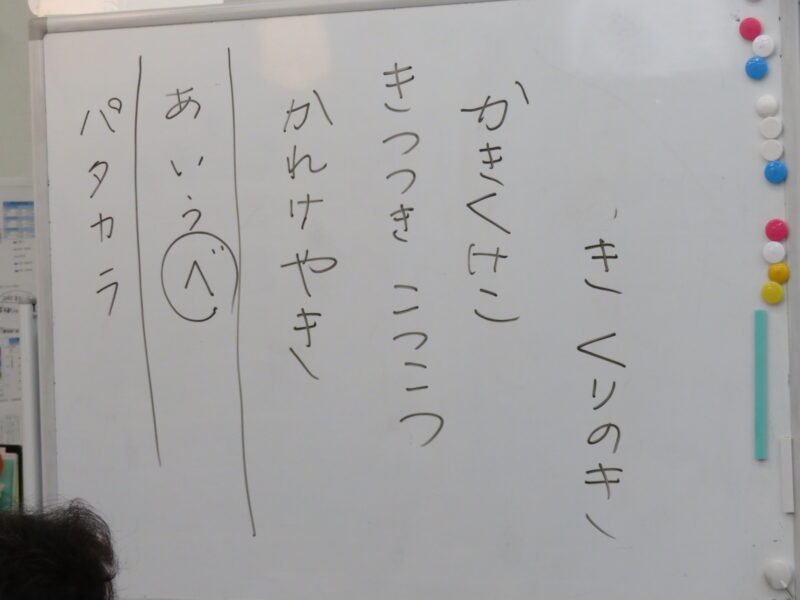 き くりのき
かきくけこ
きつつき こつこつ
かれけやき
あいうべ
パタカラ